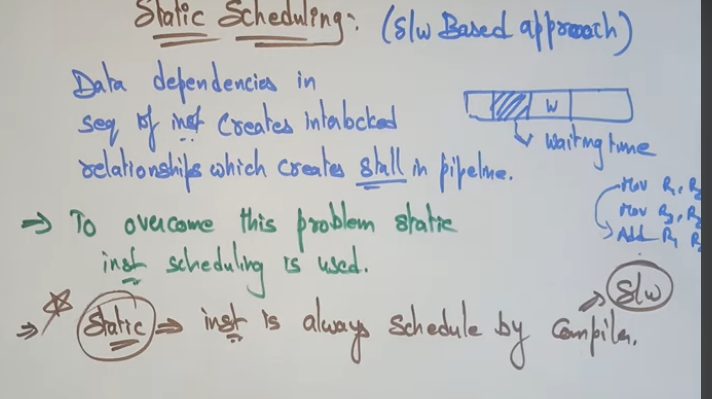 Static Scheduling: (S/w Based approach)
Data dependencies in
seq of inst Creates intalocked
relationships which creates stall in pipeline.
W
waiting time
Mov R1, R2
Mov R3, R2
Add R1 R
⇒ To overcome this problem static
inst scheduling is used.
S/w
⇒ Static ⇒ inst is always schedule by Compiler.